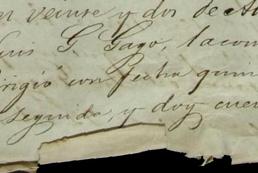 veinte y dos de
Luis G. Gago,
dirigió con fecha quin
seguida, y doy cuen